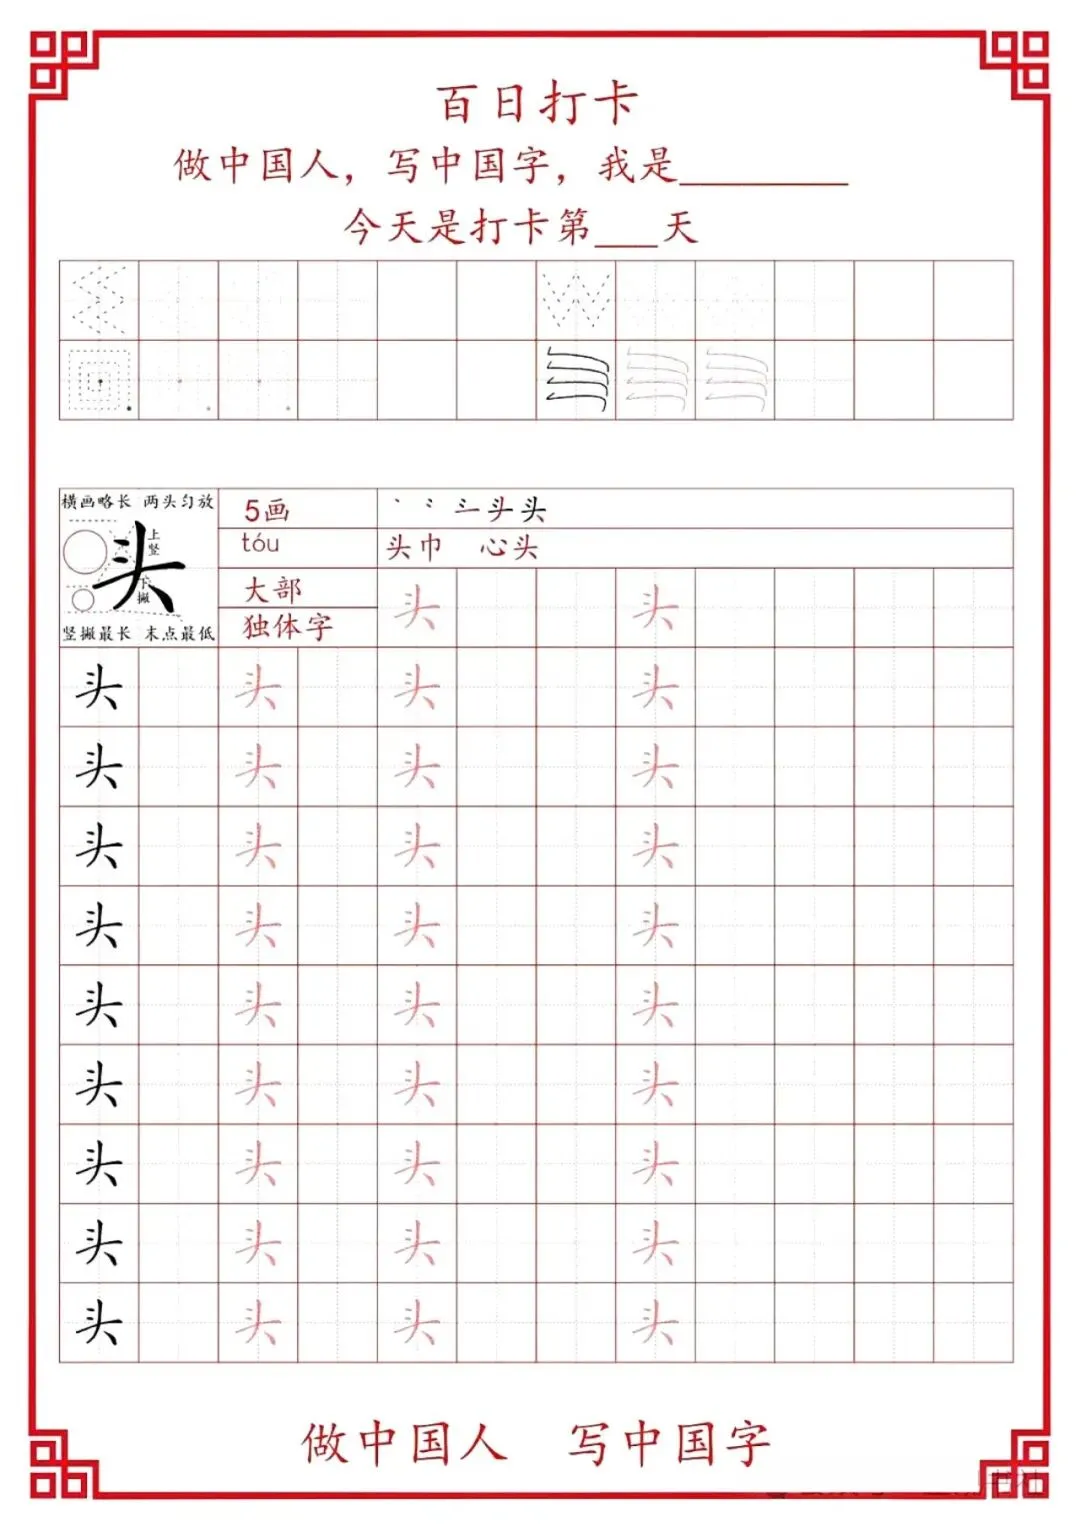 百日打卡
做中国人，写中国字，我是________
今天是打卡第___天
横画略长 两头匀放
上竖
下撇
竖撇最长 末点最低
5画
tóu
大部
独体字
头
头巾 心头
头 头
头 头 头 头
头 头 头 头
头 头 头 头
头 头 头 头
头 头 头 头
头 头 头 头
头 头 头 头
头 头 头 头
头 头 头 头
做中国人 写中国字